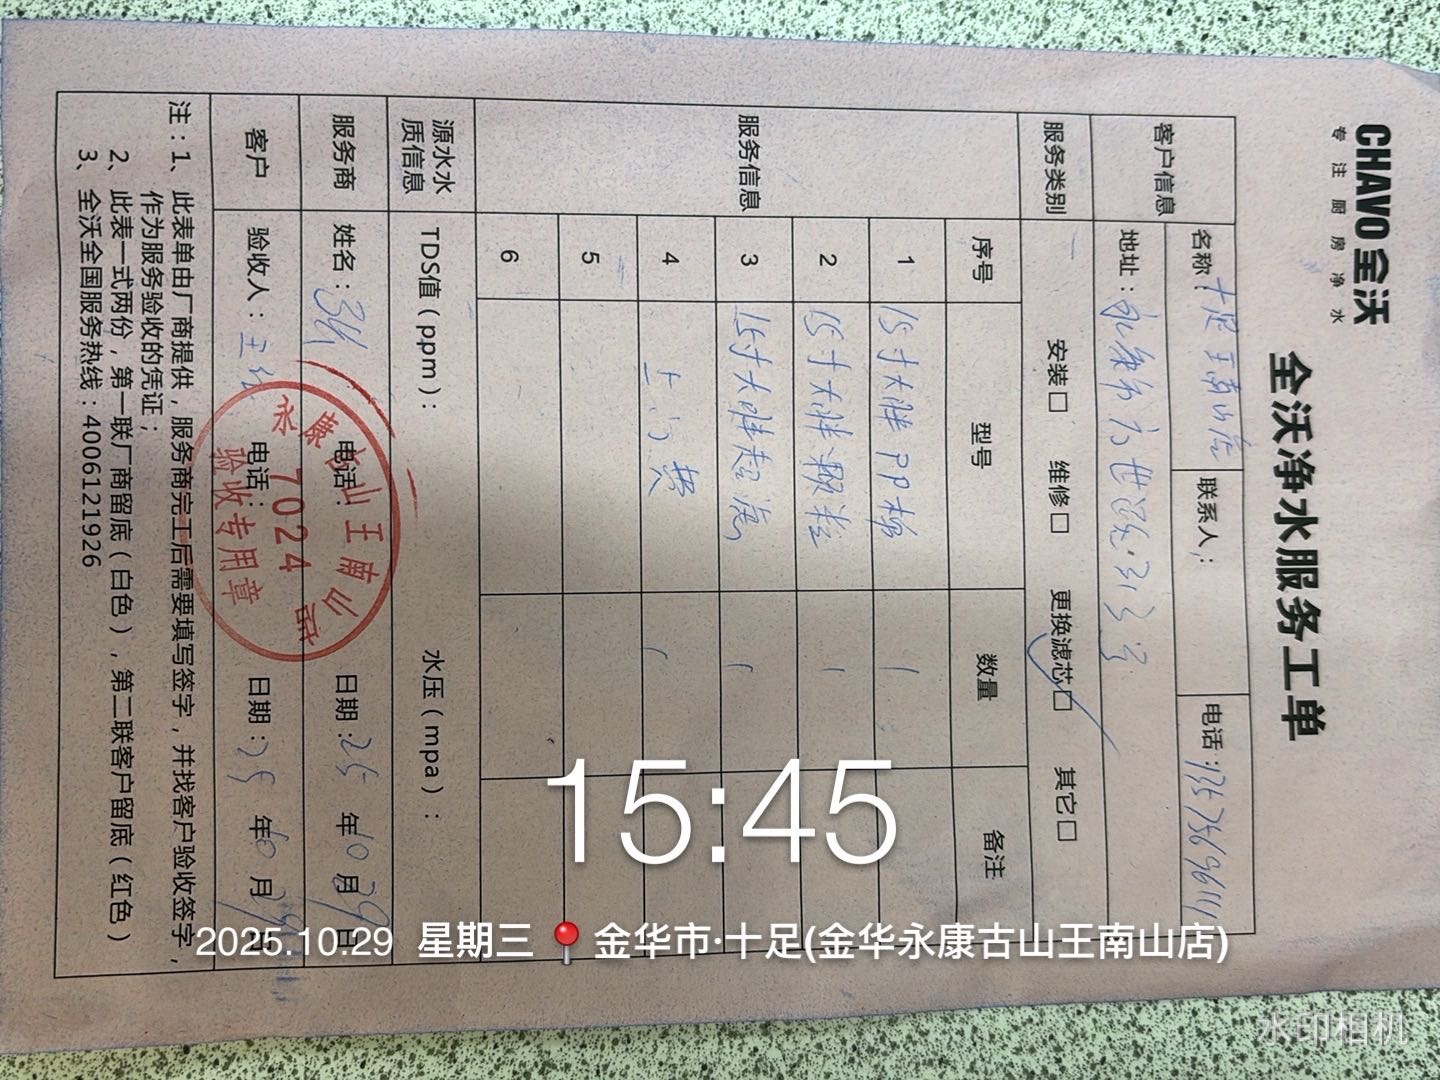 CHAVO全沃
专注厨房净水
全沃净水服务工单
客户信息
名称：十足王南山店
联系人：
电话：
地址：
服务类别
安装□ 维修□ 更换滤芯□ 其它□
服务信息
序号 型号 数量 备注
1 15寸大胖PP棉 1
2 15寸大胖颗粒 1
3 15寸大胖超滤 1
4 上门费 1
5
6
源水水质信息
TDS值（ppm）： 水压（mpa）：
服务商 姓名： 电话： 日期：25年10月29日
客户 验收人： 电话： 日期：25年10月29日
永康古山王南山店
7024
验收专用章
注：1、此表单由厂商提供，服务商完工后需要填写签字，并找客户验收签字，
作为服务验收的凭证；
2、此表一式两份，第一联厂商留底（白色），第二联客户留底（红色）
3、全沃全国服务热线：4006121926
15:45
2025.10.29 星期三 金华市·十足(金华永康古山王南山店)
水印相机